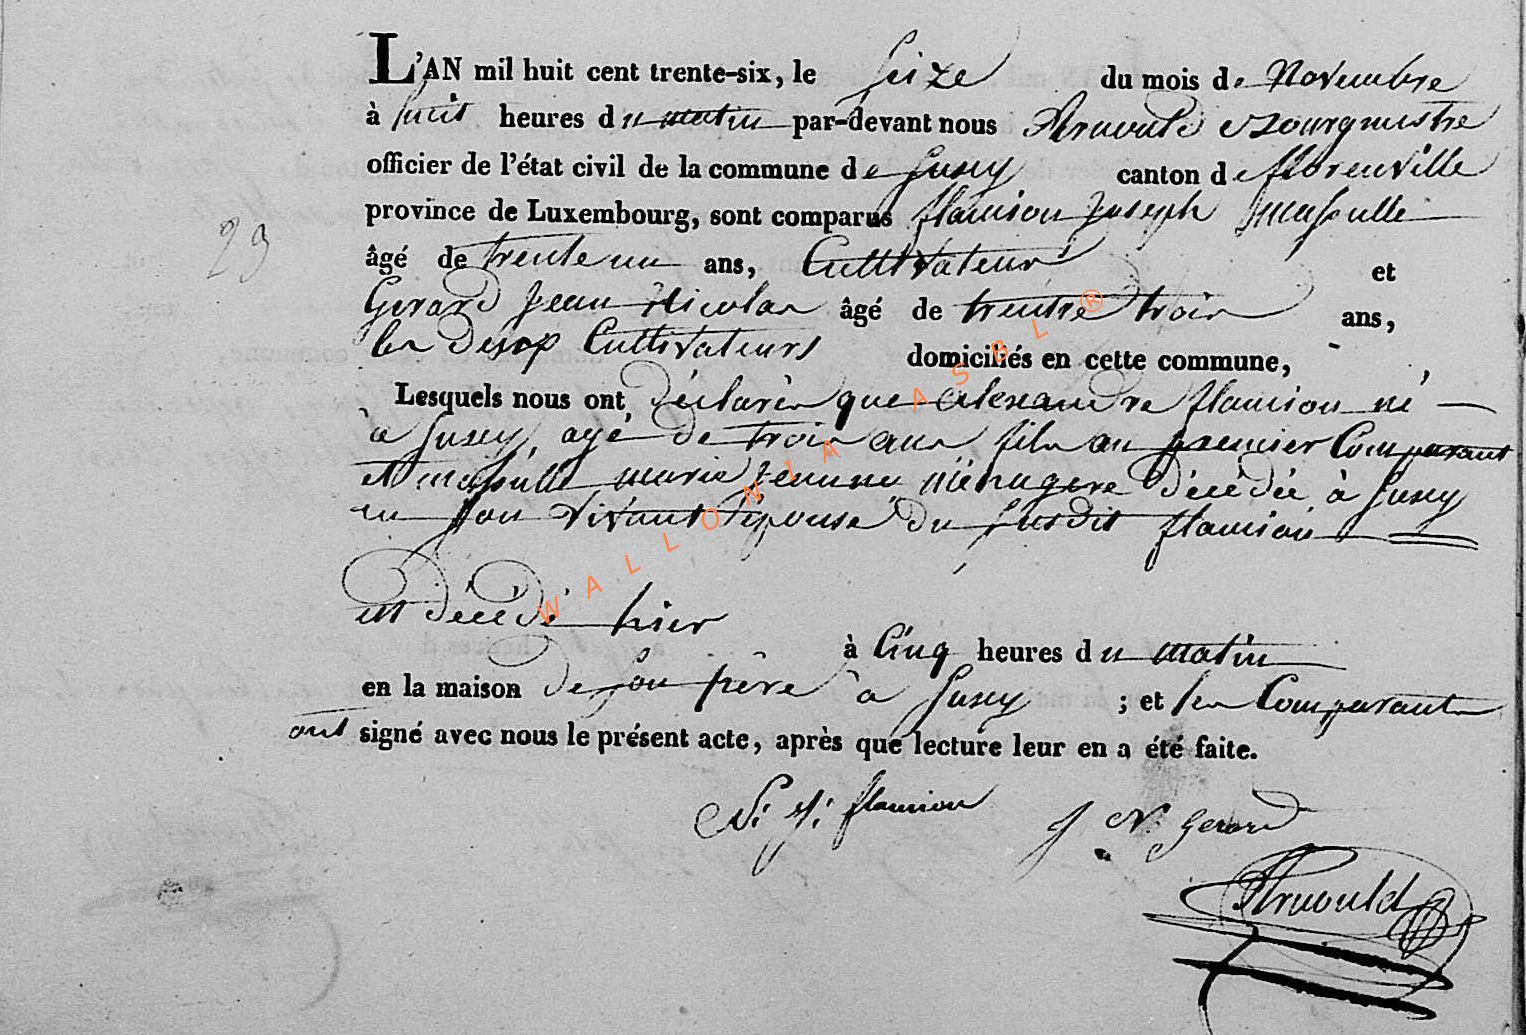 L'AN mil huit cent trente-six, le Seize du mois de Novembre
à huit heures du matin par-devant nous Arnould Bourgmestre
officier de l'état civil de la commune de Suxy canton de florenville
province de Luxembourg, sont comparus flamion Joseph
âgé de trente un ans, Cultivateur et
Gerard Jean Nicolas âgé de trentre trois ans,
les Cultivateurs domiciliés en cette commune,
Lesquels nous ont Déclarés que alexandre flamion né
à Suxy, agé de trois ans fils au premier Comparant
et marie Jeanne Ménagere Décédée à Suxy
en son vivant épouse du susdit flamion
est décédé hier
à Cinq heures du matin
en la maison de son père à Suxy ; et les Comparants
ont signé avec nous le présent acte, après que lecture leur en a été faite.
flamion J N. Gerard
Arnould
29
WALLONIA ASBL ®